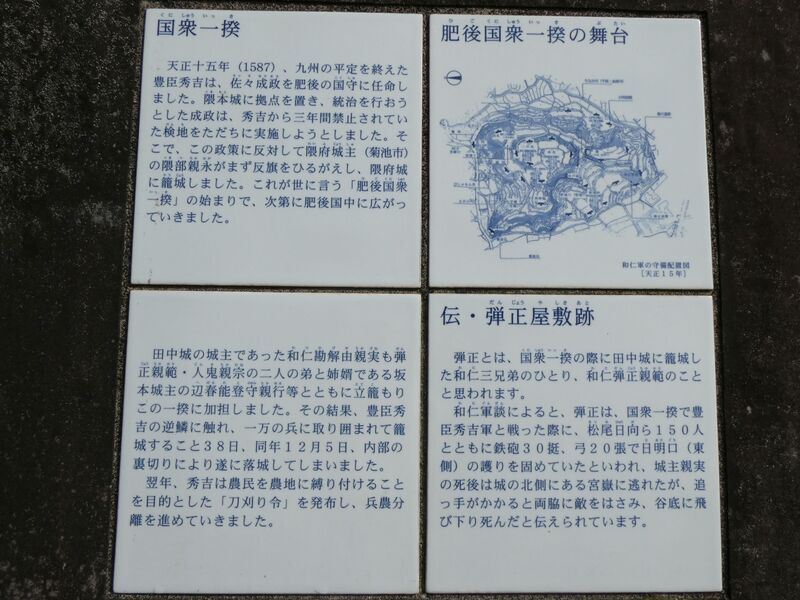 国衆一揆
天正十五年（1587）、九州の平定を終えた
豊臣秀吉は、佐々成政を肥後の国守に任命
しました。隈本城に拠点を置き、統治を行おう
とした成政は、秀吉から三年間禁止されてい
た検地をただちに実施しようとしました。そ
こで、この政策に反対して隈府城主（菊池市）
の隈部親永がまず反旗をひるがえし、隈府城
に籠城しました。これが世に言う「肥後国衆
一揆」の始まりで、次第に肥後国中に広がっ
ていきました。
肥後国衆一揆の舞台
和仁軍の守備配置図
［天正１５年］
田中城の城主であった和仁勘解由親実も弾
正親範・人鬼親宗の二人の弟と姉婿である坂
本城主の辺春能登守親行等とともに立籠もり
この一揆に加担しました。その結果、豊臣秀
吉の逆鱗に触れ、一万の兵に取り囲まれて籠
城すること３８日、同年１２月５日、内部の
裏切りにより遂に落城してしまいました。
翌年、秀吉は農民を農地に縛り付けること
を目的とした「刀刈り令」を発布し、兵農分
離を進めていきました。
伝・弾正屋敷跡
弾正とは、国衆一揆の際に田中城に籠城し
た和仁三兄弟のひとり、和仁弾正親範のこと
と思われます。
和仁軍談によると、弾正は、国衆一揆で豊
臣秀吉軍と戦った際に、松尾日向ら１５０人
とともに鉄砲３０挺、弓２０張で日明口（東
側）の護りを固めていたといわれ、城主親実
の死後は城の北側にある宮嶽に逃れたが、追
っ手がかかると両脇に敵をはさみ、谷底に飛
び下り死んだと伝えられています。